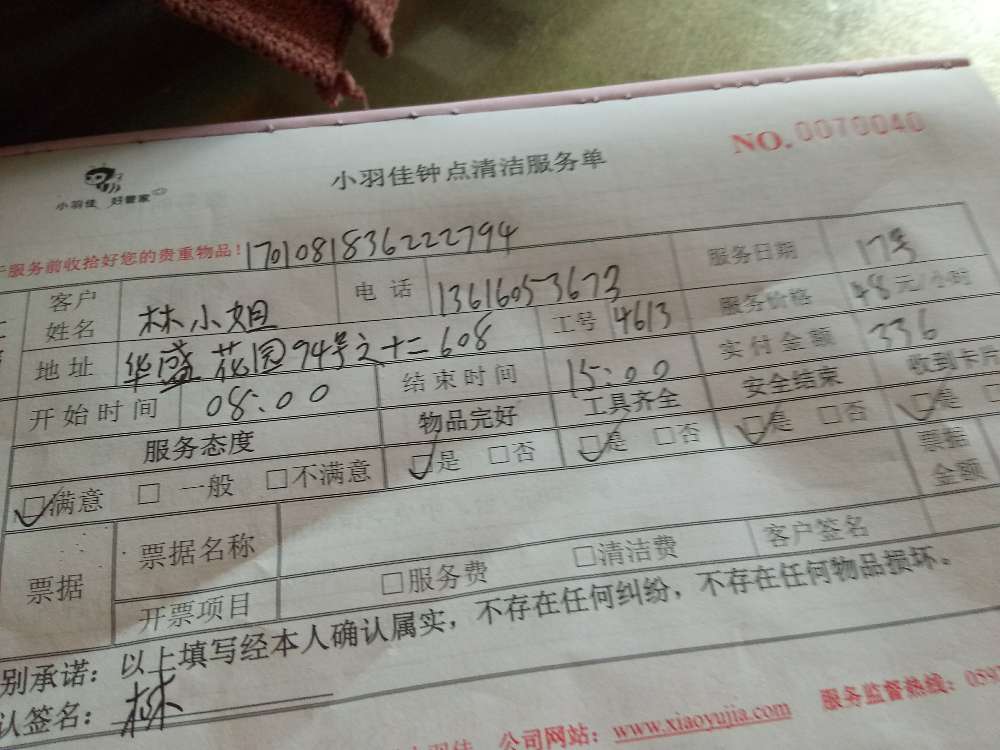 NO. 0070040
小羽佳 好管家
小羽佳钟点清洁服务单
服务前收拾好您的贵重物品！170108183622２794
客户姓名 林小姐 电话 13616053673 服务日期 17号
地址 华盛花园94号之十二608 工号 4613 服务价格 48元/小时
开始时间 08:00 结束时间 15:00 实付金额 336
服务态度 物品完好 工具齐全 安全结束 收到卡片
□满意 □一般 □不满意 □是 □否 □是 □否 □是 □否 □是
票据 票据名称 票据金额
开票项目 □服务费 □清洁费 客户签名
别承诺：以上填写经本人确认属实，不存在任何纠纷，不存在任何物品损坏。
认签名：林
公司网站：www.xiaoyujia.com 服务监督热线：059